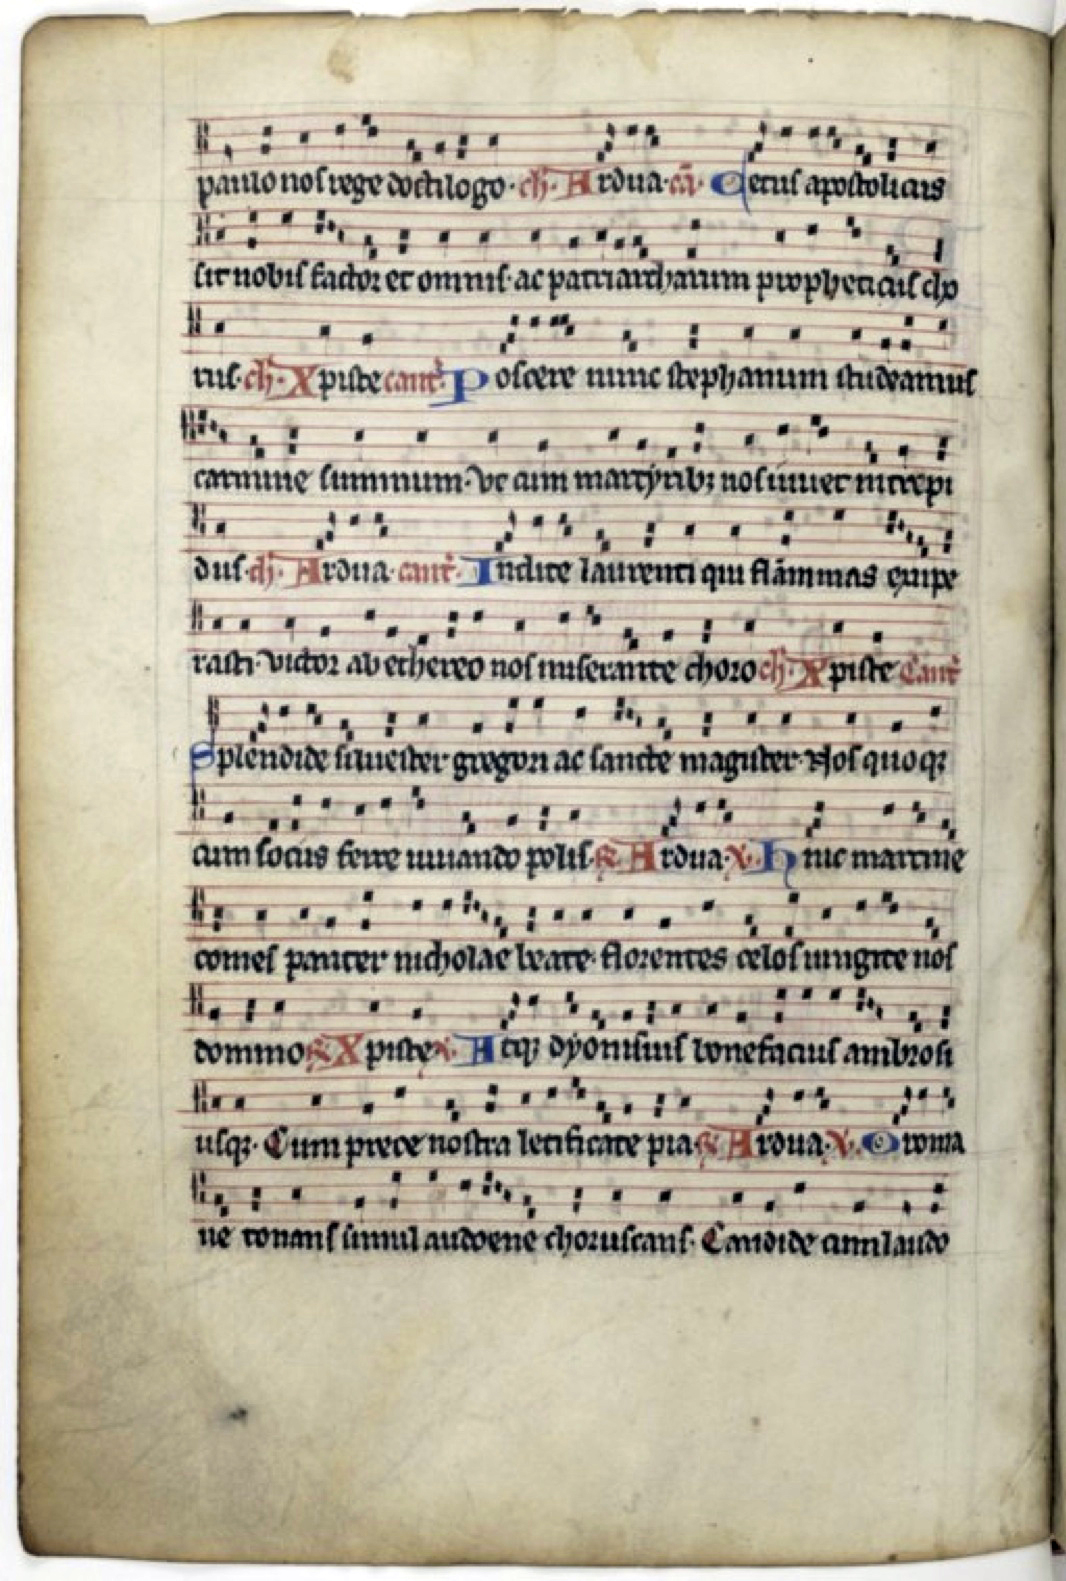 paulo nos rege doctilogo. ch. Ardua. cā. Cetus apostolicus
sit nobis fautor et omnis. ac patriarcharum propheticus cho
rus. ch. Xpiste cant. Poscere nunc stephanum studeamus
carmine summum. Vt cum martyribꝫ nos iuuet intrepi
dus. ch. Ardua. cant. Inclite laurenti qui flāmmas exupe
rasti. victor ab ethereo nos miserante choro ch. Xpiste Cant
Splendide siluester gregori ac sancte magister. Nos quoqꝫ
cum sociis ferre iuuando polis. R. Ardua. v. Hinc martine
comes pariter nicholae beate. florentes celos iungite nos
domino R. Xpiste v. Atqꝫ dyonisius bonefacius ambrosi
usqꝫ. Cum prece nostra letificate pia R. Ardua. v. O roma
ne tonans simul audoene choruscans. Candide cum laudo